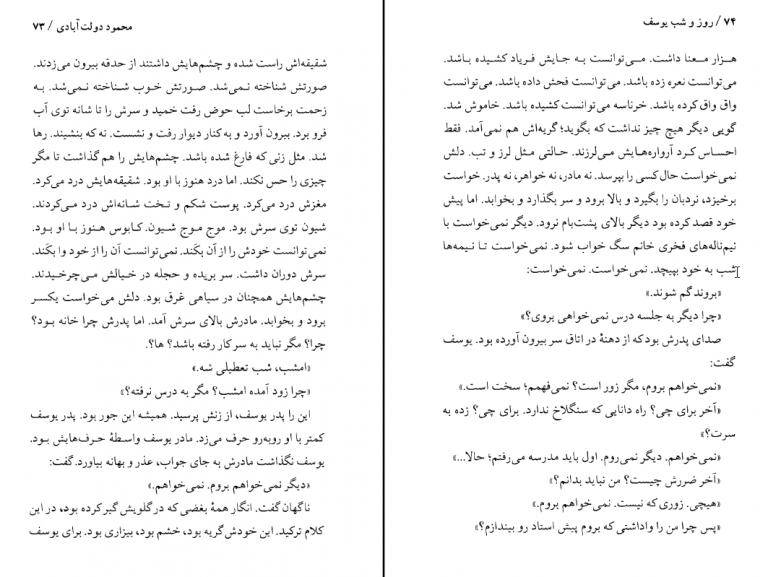 محمود دولت‌آبادی / ۷۳
شقیقه‌اش راست شده و چشم‌هایش داشتند از حدقه بیرون می‌زدند.
صورتش شناخته نمی‌شد. صورتش خوب شناخته نمی‌شد. به
زحمت برخاست لب حوض رفت خمید و سرش را تا شانه توی آب
فرو برد. بیرون آورد و به کنار دیوار رفت و نشست. نه که بنشیند. رها
شد. مثل زنی که فارغ شده باشد. چشم‌هایش را هم گذاشت تا مگر
چیزی را حس نکند. اما درد هنوز با او بود. شقیقه‌هایش درد می‌کرد.
مغزش درد می‌کرد. پوست شکم و تخت شانه‌اش درد می‌کردند.
شیون توی سرش بود. موج موج شیون. کابوس هنوز با او بود.
نمی‌توانست خودش را از آن بکَند. نمی‌توانست آن را از خود وا بکَند.
سرش دوران داشت. سر بریده و حجله در خیالش می‌چرخیدند.
چشم‌هایش همچنان در سیاهی غرق بود. دلش می‌خواست یکسر
برود و بخوابد. مادرش بالای سرش آمد. اما پدرش چرا خانه بود؟
چرا؟ مگر نباید به سر کار رفته باشد؟ ها؟.
«امشب، شب تعطیلی شه.»
«چرا زود آمده امشب؟ مگر به درس نرفته؟»
این را پدر یوسف، از زنش پرسید. همیشه این جور بود. پدر یوسف
کمتر با او روبه‌رو حرف می‌زد. مادر یوسف واسطهٔ حرف‌هایش بود.
یوسف نگذاشت مادرش به جای جواب، عذر و بهانه بیاورد. گفت:
«دیگر نمی‌خواهم بروم. نمی‌خواهم.»
ناگهان گفت. انگار همهٔ بغضی که در گلویش گیر کرده بود، در این
کلام ترکید. این خودش گریه بود، خشم بود، بیزاری بود. برای یوسف
۷۴ / روز و شب یوسف
هزار معنا داشت. می‌توانست به جایش فریاد کشیده باشد.
می‌توانست نعره زده باشد. می‌توانست فحش داده باشد. می‌توانست
واق واق کرده باشد. خرناسه می‌توانست کشیده باشد. خاموش شد.
گویی دیگر هیچ چیز نداشت که بگوید؛ گریه‌اش هم نمی‌آمد. فقط
احساس کرد آرواره‌هایش می‌لرزند. حالتی مثل لرز و تب. دلش
نمی‌خواست حال کسی را بپرسد. نه مادر، نه خواهر، نه پدر. خواست
برخیزد، نردبان را بگیرد و بالا برود و سر بگذارد و بخوابد. اما پیش
خود قصد کرده بود دیگر بالای پشت‌بام نرود. دیگر نمی‌خواست با
نیم‌ناله‌های فخری خانم سگ خواب شود. نمی‌خواست تا نیمه‌ها
شب به خود بپیچد. نمی‌خواست. نمی‌خواست:
«بروند گم شوند.»
«چرا دیگر به جلسه درس نمی‌خواهی بروی؟»
صدای پدرش بود که از دهنهٔ در اتاق سر بیرون آورده بود. یوسف
گفت:
«نمی‌خواهم بروم، مگر زور است؟ نمی‌فهمم؛ سخت است.»
«آخر برای چی؟ راه دانایی که سنگلاخ ندارد. برای چی؟ زده به
سرت؟»
«نمی‌خواهم. دیگر نمی‌روم. اول باید مدرسه می‌رفتم؛ حالا...»
«آخر ضررش چیست؟ من نباید بدانم؟»
«هیچی. زوری که نیست. نمی‌خواهم بروم.»
«پس چرا من را واداشتی که بروم پیش استاد رو بیندازم؟»